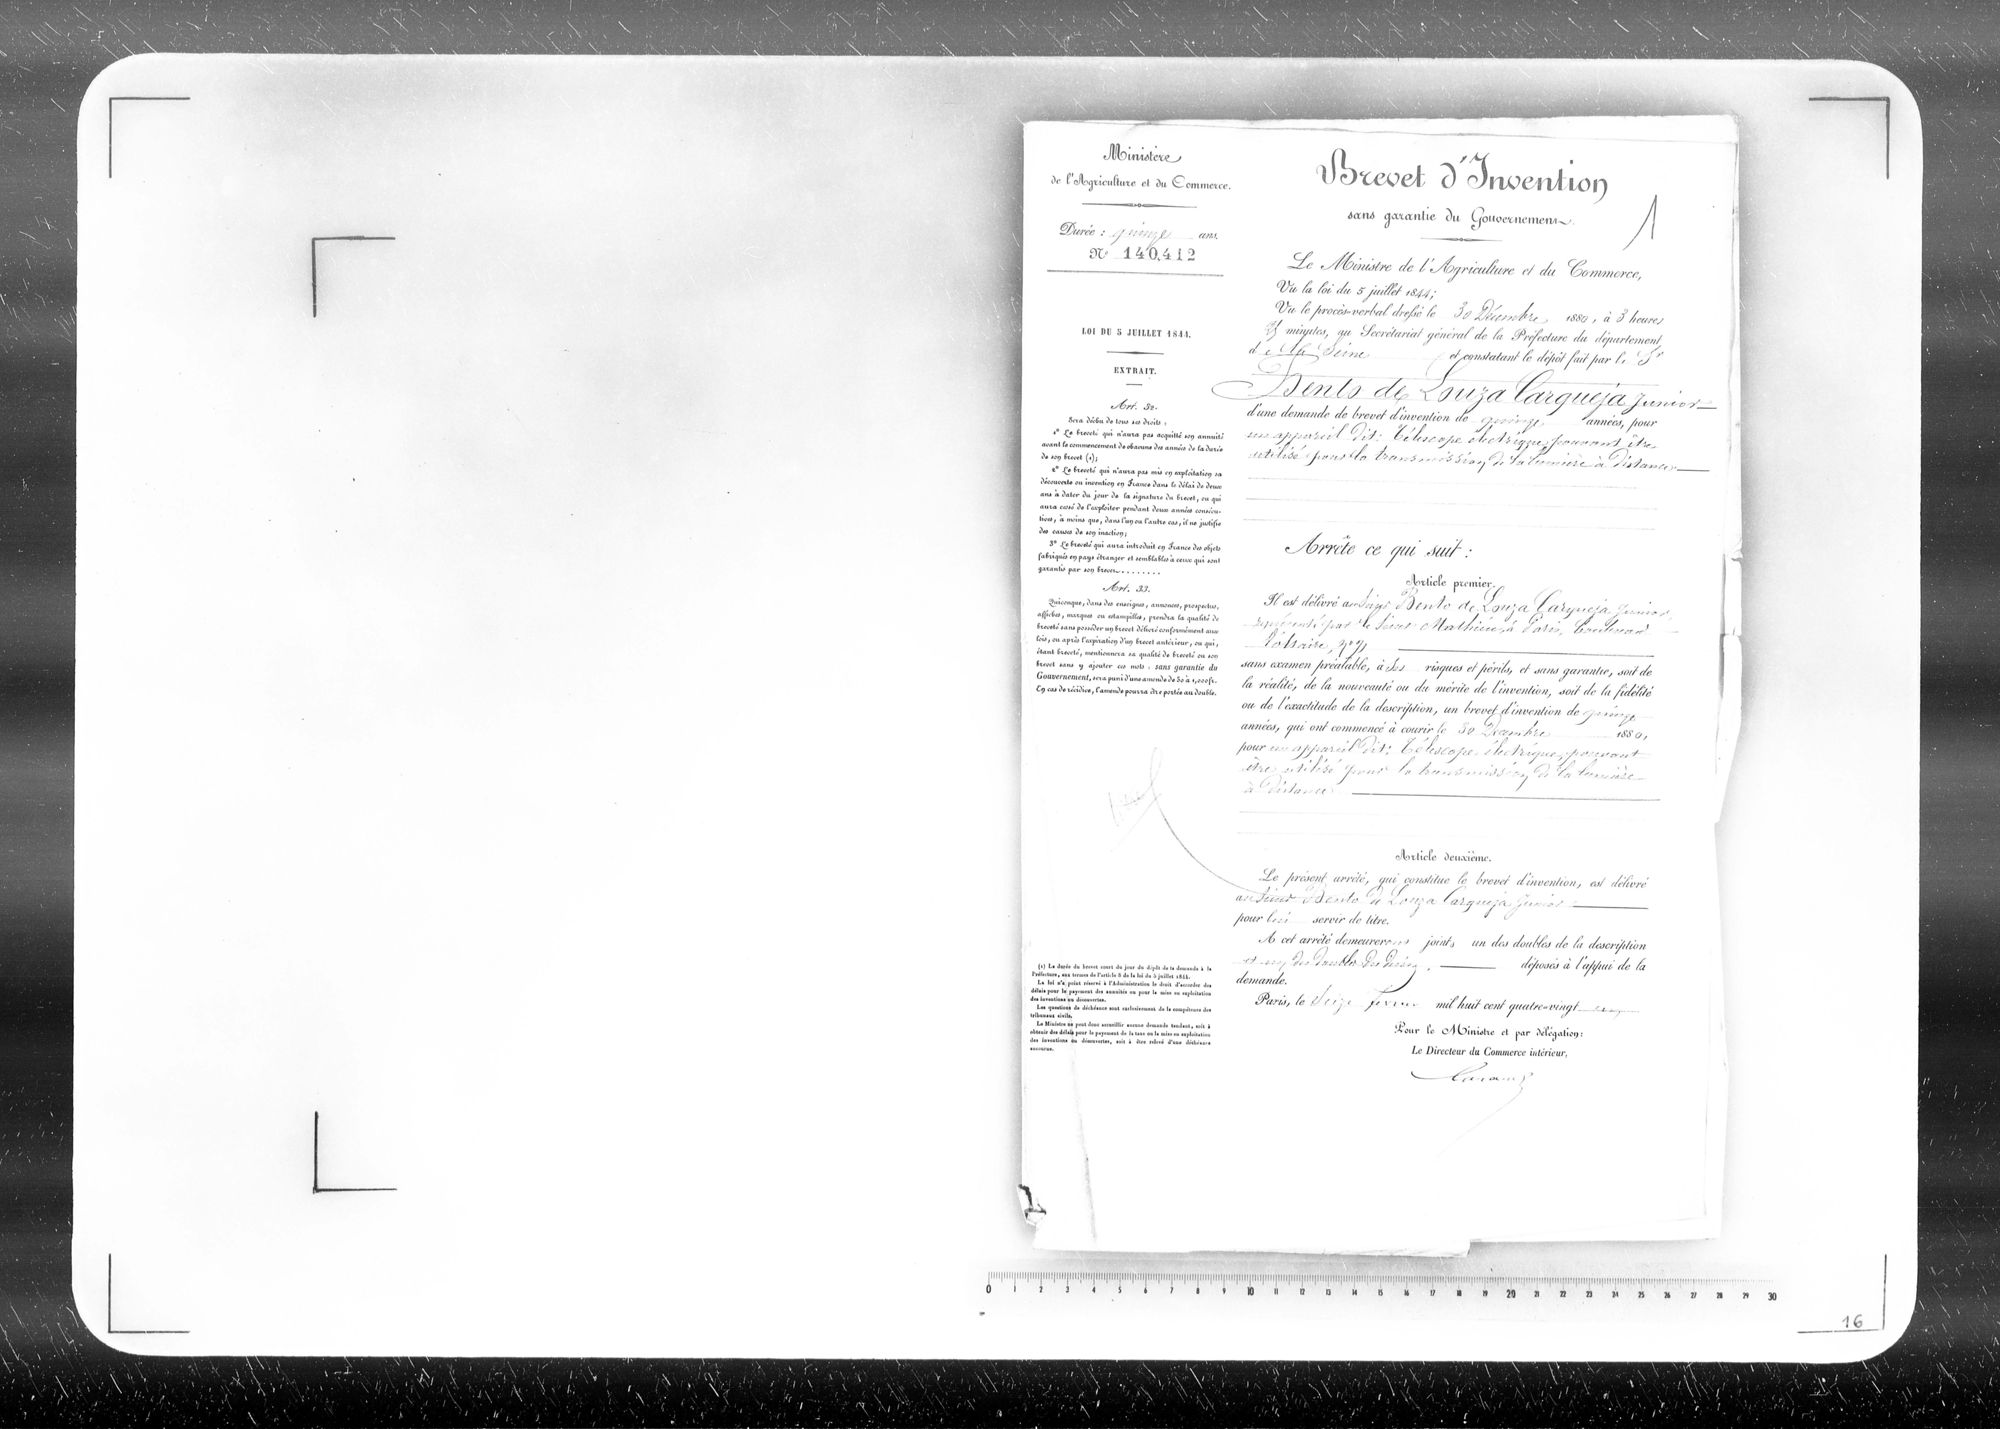 Ministère
de l'Agriculture et du Commerce.
Durée : quinze ans.
N° 140,412
LOI DU 5 JUILLET 1844.
EXTRAIT.
Art. 32.
Sera déchu de tous ses droits :
1° Le breveté qui n'aura pas acquitté son annuité
avant le commencement de chacune des années de la durée
de son brevet (1);
2° Le breveté qui n'aura pas mis en exploitation sa
découverte ou invention en France dans le délai de deux
ans à dater du jour de la signature du brevet, ou qui
aura cessé de l'exploiter pendant deux années consécu-
tives, à moins que, dans l'un ou l'autre cas, il ne justifie
des causes de son inaction;
3° Le breveté qui aura introduit en France des objets
fabriqués en pays étranger et semblables à ceux qui sont
garantis par son brevet.........
Art. 33.
Quiconque, dans des enseignes, annonces, prospectus,
affiches, marques ou estampilles, prendra la qualité de
breveté sans posséder un brevet délivré conformément aux
lois, ou après l'expiration d'un brevet antérieur, ou qui,
étant breveté, mentionnera sa qualité de breveté ou son
brevet sans y ajouter ces mots : sans garantie du
Gouvernement, sera puni d'une amende de 50 à 1,000 fr.
En cas de récidive, l'amende pourra être portée au double.
(1) La durée du brevet court du jour du dépôt de la demande à la
Préfecture, aux termes de l'article 8 de la loi du 5 juillet 1844.
La loi n'a point réservé à l'Administration le droit d'accorder des
délais pour le payement des annuités ou pour la mise en exploitation
des inventions ou découvertes.
Les questions de déchéance sont exclusivement de la compétence des
tribunaux civils.
Le Ministre ne peut donc accueillir aucune demande tendant, soit à
obtenir des délais pour le payement de la taxe ou la mise en exploitation
des inventions ou découvertes, soit à être relevé d'une déchéance
encourue.
Brevet d'Invention
sans garantie du Gouvernement.
1
Le Ministre de l'Agriculture et du Commerce,
Vu la loi du 5 juillet 1844;
Vu le procès-verbal dressé le 30 Décembre 1880, à 3 heures
minutes, au Secrétariat général de la Préfecture du département
de la Seine et constatant le dépôt fait par le Sr
Bento de Souza Carqueja Junior
d'une demande de brevet d'invention de quinze années, pour
un appareil dit: Télescope électrique, pouvant être
utilisé pour la transmission de la lumière à distance
Arrête ce qui suit :
Article premier.
Il est délivré au Sieur Bento de Souza Carqueja Junior,
représenté par le Sieur Mathieu, à Paris, Boulevard
Voltaire,
sans examen préalable, à ses risques et périls, et sans garantie, soit de
la réalité, de la nouveauté ou du mérite de l'invention, soit de la fidélité
ou de l'exactitude de la description, un brevet d'invention de quinze
années, qui ont commencé à courir le 30 Décembre 1880,
pour un appareil dit: Télescope électrique, pouvant
être utilisé pour la transmission de la lumière
à distance
Article deuxième.
Le présent arrêté, qui constitue le brevet d'invention, est délivré
au Sieur Bento de Souza Carqueja Junior
pour lui servir de titre.
A cet arrêté demeureront joints un des doubles de la description
et un des doubles du dessin, déposés à l'appui de la
demande.
Paris, le Seize Février mil huit cent quatre-vingt un
Pour le Ministre et par délégation:
Le Directeur du Commerce intérieur,
0 1 2 3 4 5 6 7 8 9 10 11 12 13 14 15 16 17 18 19 20 21 22 23 24 25 26 27 28 29 30
16